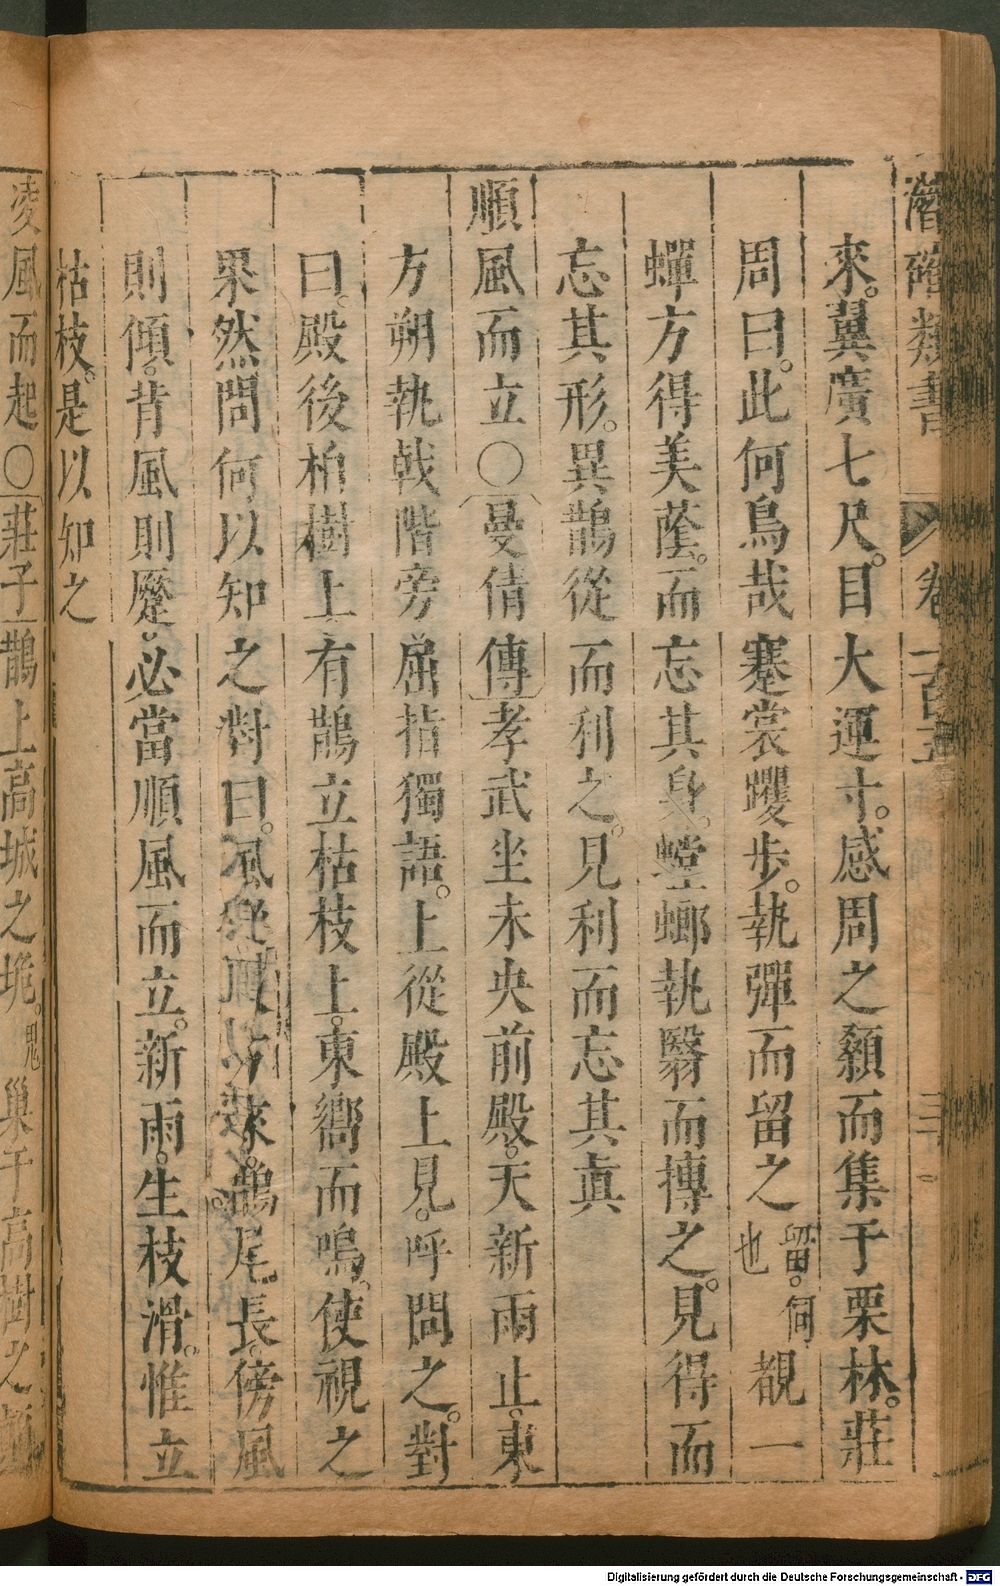 潛確類書 卷一百五
來翼廣七尺。目大運寸。感周之顙而集于栗林。莊
周曰。此何鳥哉蹇裳躩步。執彈而留之留。伺也覩一
蟬方得美蔭。而忘其身。螳螂執翳而搏之。見得而
忘其形。異鵲從而利之。見利而忘其眞
順風而立〇曼倩傳孝武坐未央前殿。天新雨止。東
方朔執戟階旁屈指獨語。上從殿上見。呼問之。對
曰。殿後柏樹上有鵲立枯枝上。東嚮而鳴。使視之
果然問何以知之對曰。風從東方來。鵲尾長。傍風
則傾。背風則蹷。必當順風而立。新雨。生枝滑。惟立
枯枝。是以知之
凌風而起〇莊子鵲上高城之垝。巢于高樹之顛
Digitalisierung gefördert durch die Deutsche Forschungsgemeinschaft - DFG